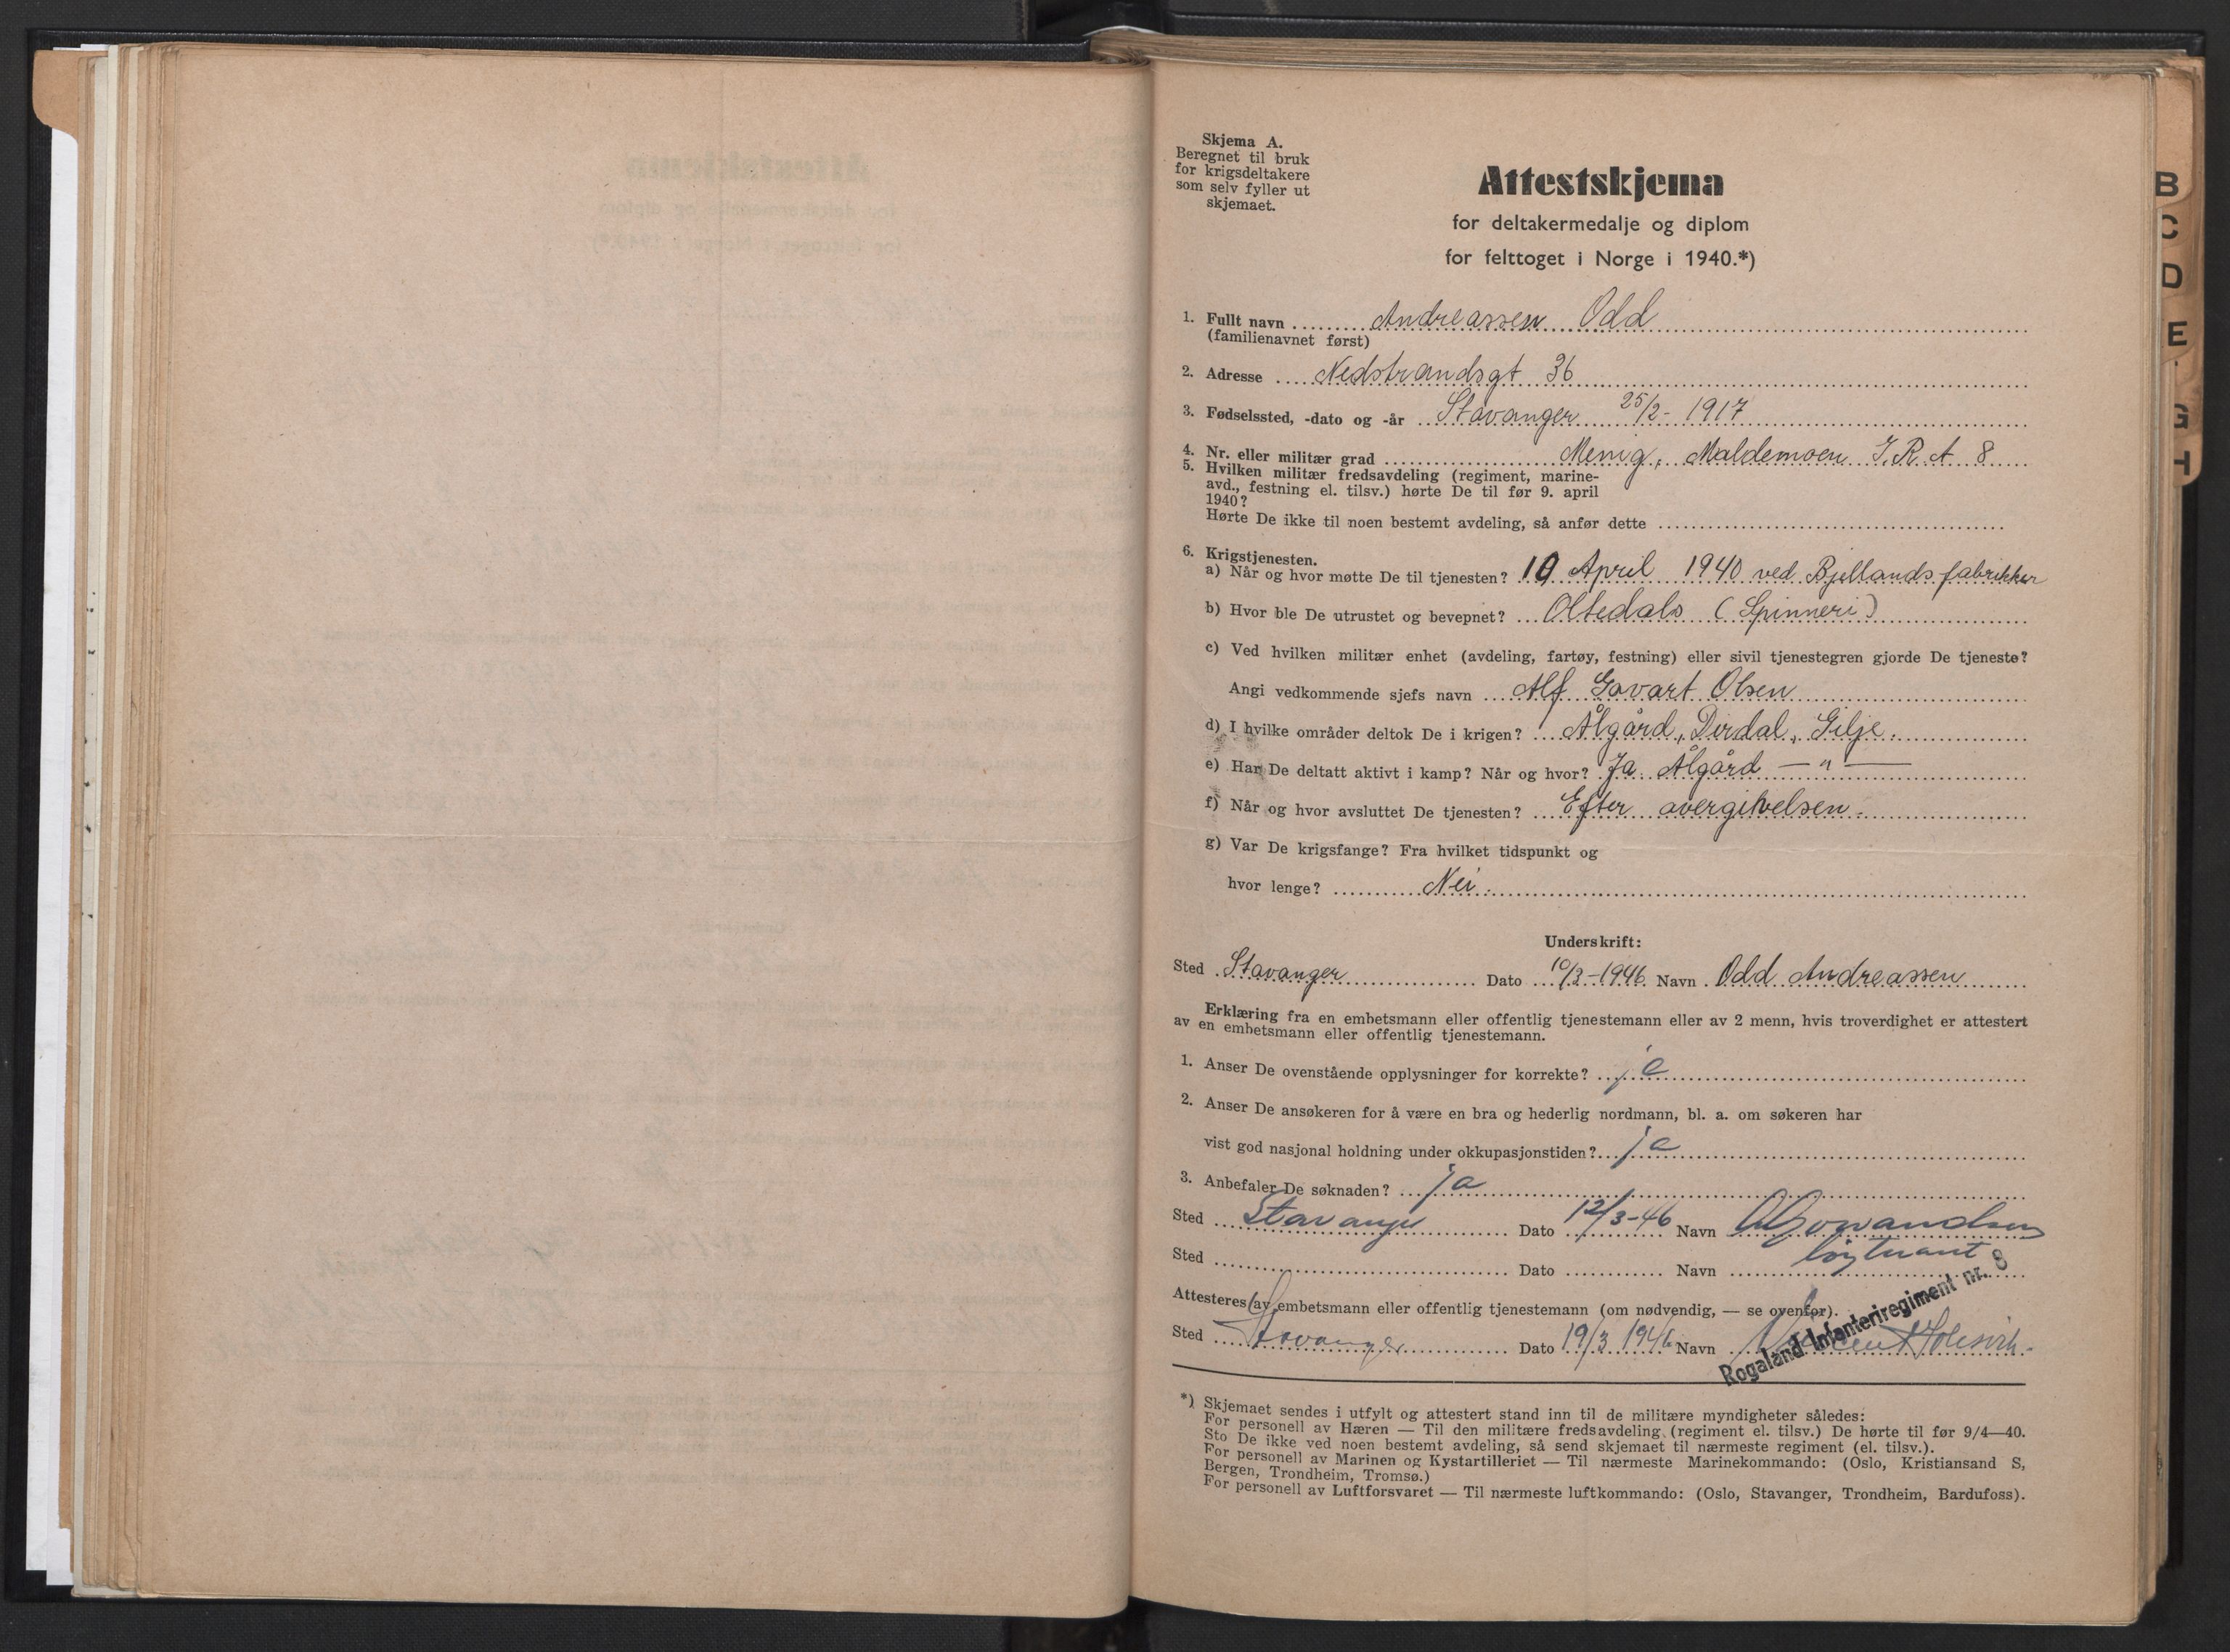 Skjema A.
Beregnet til bruk
for krigsdeltakere
som selv fyller ut
skjemaet.
Attestskjema
for deltakermedalje og diplom
for felttoget i Norge i 1940.*)
1. Fullt navn Andreassen Odd
(familienavnet først)
2. Adresse Nedstrandsgt 36
3. Fødselssted, -dato og -år Stavanger 25/2- 1917
4. Nr. eller militær grad Menig, Maldemoen I.R. A 8
5. Hvilken militær fredsavdeling (regiment, marine-
avd., festning el. tilsv.) hørte De til før 9. april
1940?
Hørte De ikke til noen bestemt avdeling, så anfør dette
6. Krigstjenesten.
a) Når og hvor møtte De til tjenesten? 10 April 1940 ved Bjellands fabrikker
b) Hvor ble De utrustet og bevepnet? Oltedals (Spinneri)
c) Ved hvilken militær enhet (avdeling, fartøy, festning) eller sivil tjenestegren gjorde De tjeneste?
Angi vedkommende sjefs navn Alf Gavart Olsen
d) I hvilke områder deltok De i krigen? Ålgård, Dirdal, Gilje.
e) Har De deltatt aktivt i kamp? Når og hvor? Ja. Ålgård — " —
f) Når og hvor avsluttet De tjenesten? Efter overgivelsen.
g) Var De krigsfange? Fra hvilket tidspunkt og
hvor lenge? Nei.
Underskrift:
Sted Stavanger Dato 10/3-1946 Navn Odd Andreassen
Erklæring fra en embetsmann eller offentlig tjenestemann eller av 2 menn, hvis troverdighet er attestert
av en embetsmann eller offentlig tjenestemann.
1. Anser De ovenstående opplysninger for korrekte? ja
2. Anser De ansøkeren for å være en bra og hederlig nordmann, bl. a. om søkeren har
vist god nasjonal holdning under okkupasjonstiden? ja
3. Anbefaler De søknaden? ja
Sted Stavanger Dato 12/3-46 Navn
løytnant
Sted Dato Navn
Attesteres av embetsmann eller offentlig tjenestemann (om nødvendig, — se ovenfor).
Sted Stavanger Dato 19/3 1946 Navn
Rogaland Infanteriregiment nr. 8
*) Skjemaet sendes i utfylt og attestert stand inn til de militære myndigheter således:
For personell av Hæren — Til den militære fredsavdeling (regiment el. tilsv.) De hørte til før 9/4—40.
Sto De ikke ved noen bestemt avdeling, så send skjemaet til nærmeste regiment (el. tilsv.).
For personell av Marinen og Kystartilleriet — Til nærmeste Marinekommando: (Oslo, Kristiansand S,
Bergen, Trondheim, Tromsø.)
For personell av Luftforsvaret — Til nærmeste luftkommando: (Oslo, Stavanger, Trondheim, Bardufoss).
B
C
D
E
G